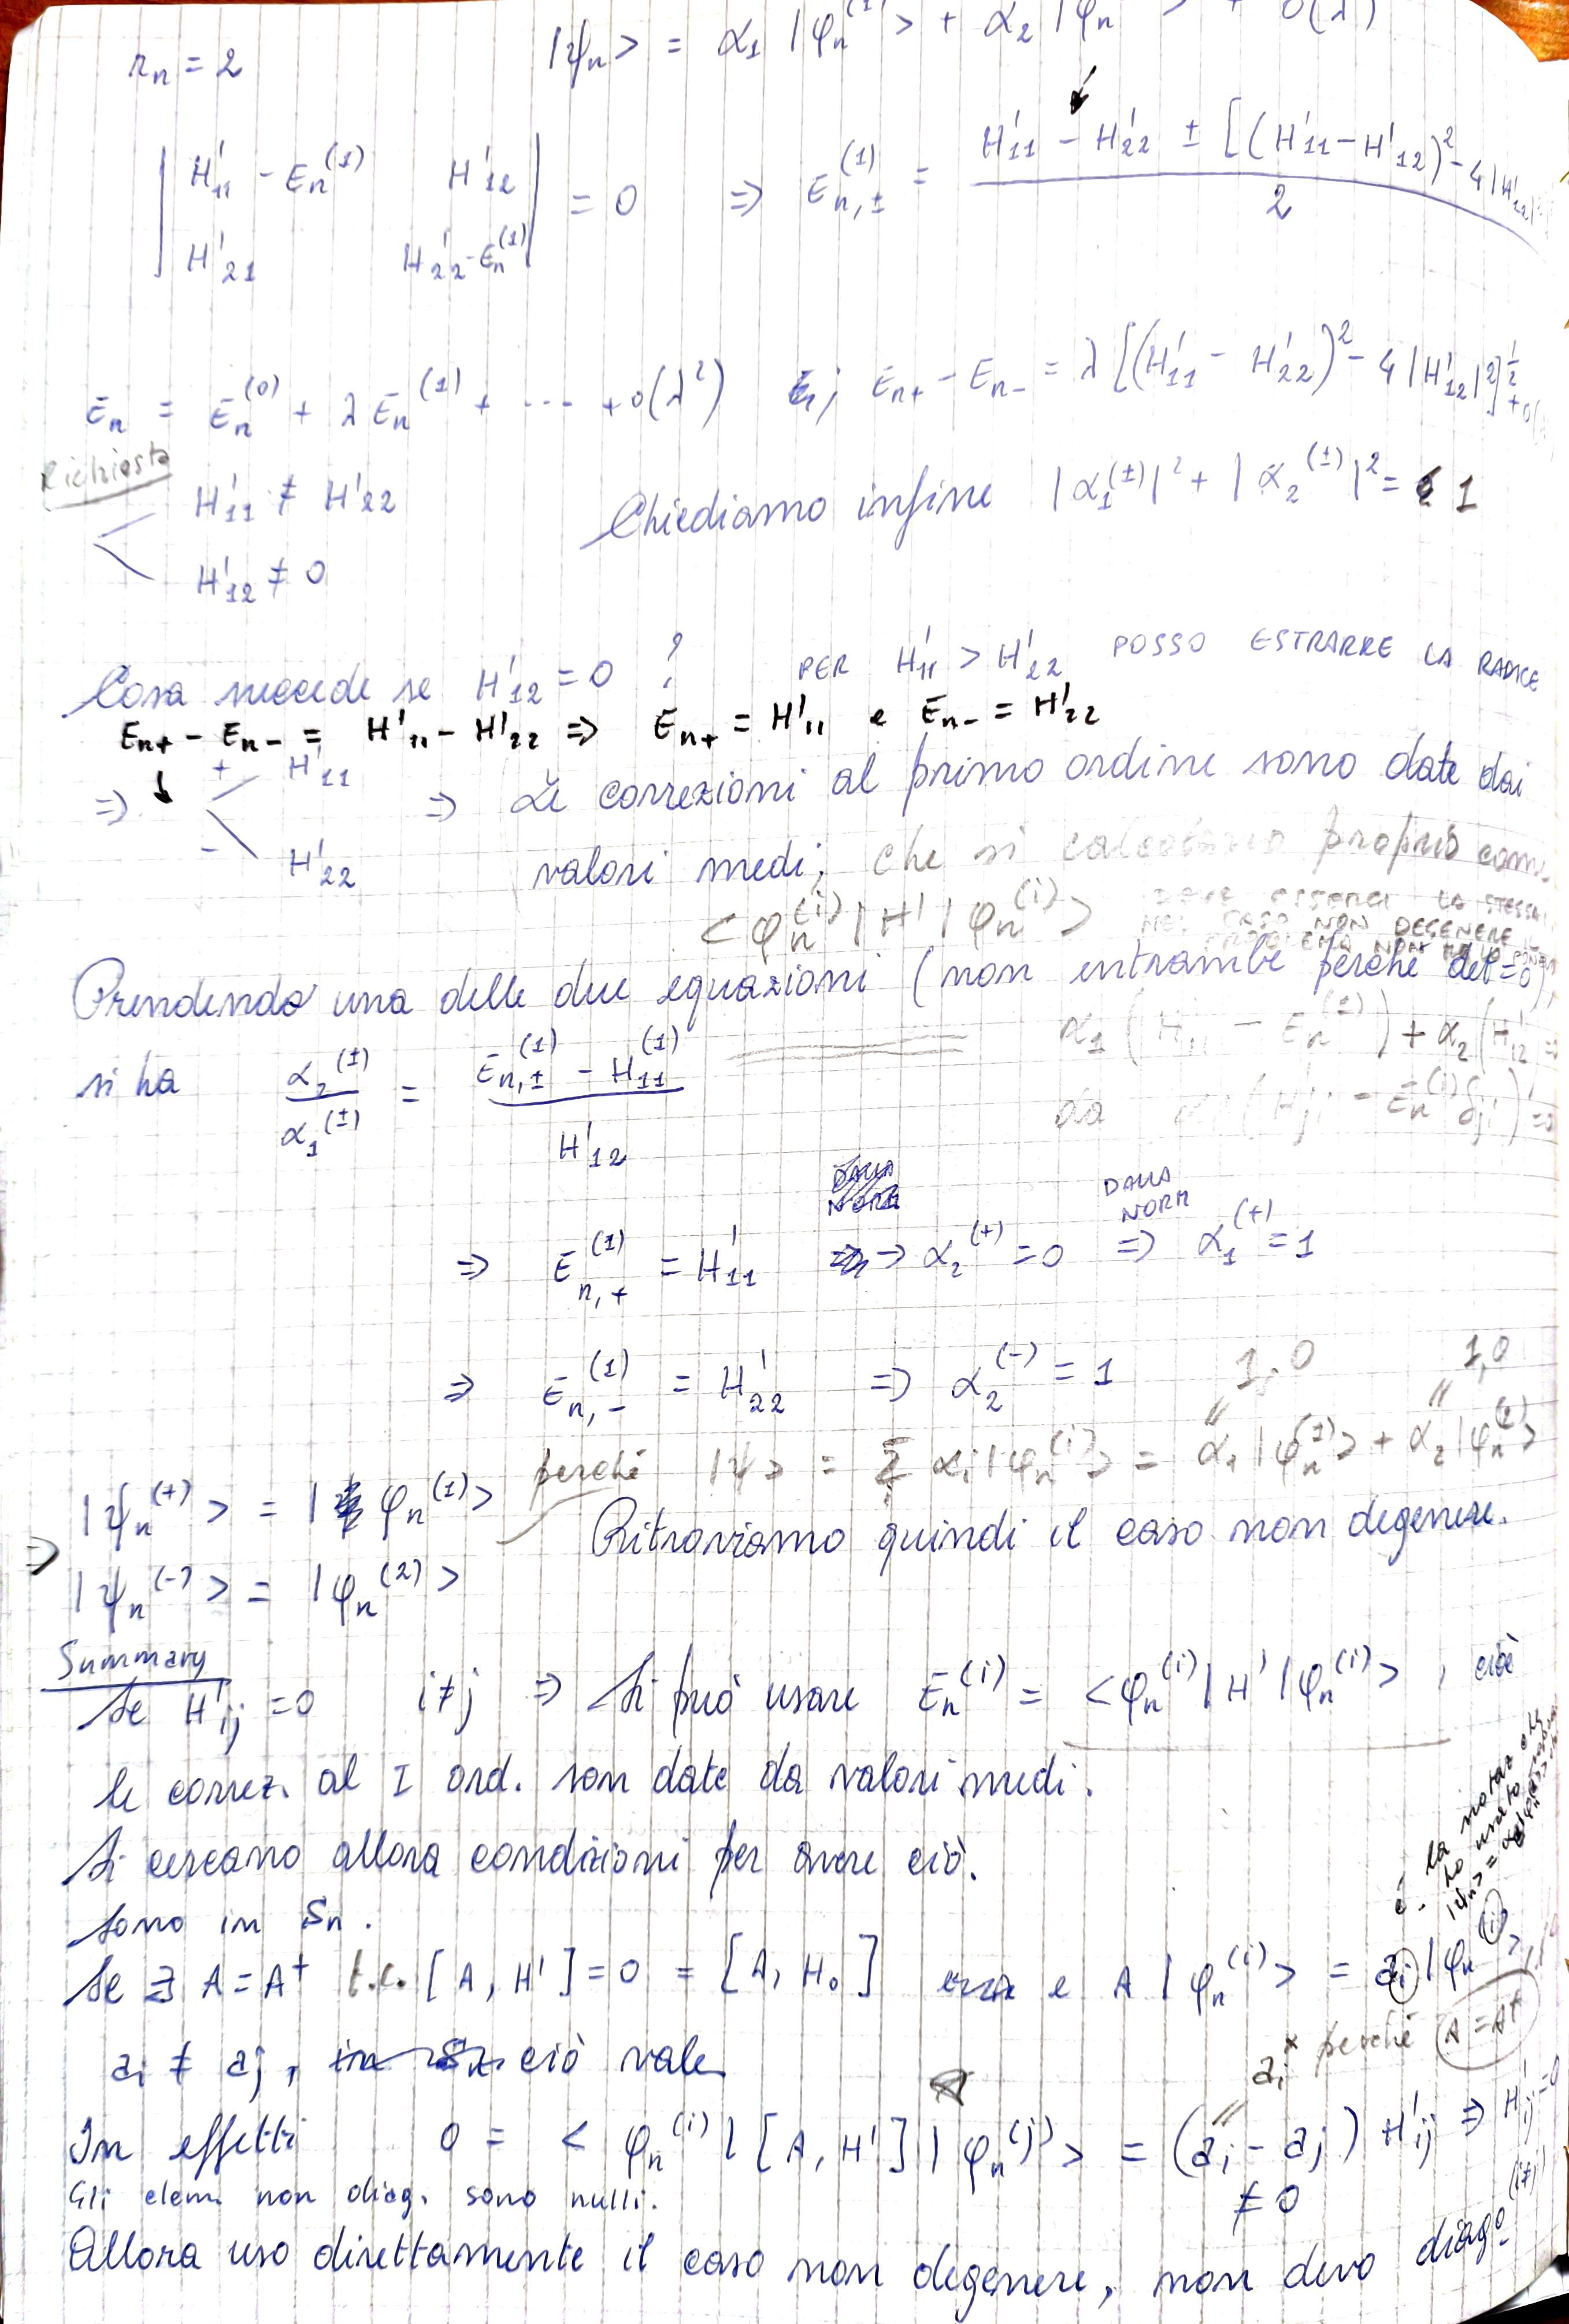 r_n = 2
|ψ_n> = α_1 |φ_n^(1)> + α_2 |φ_n > + O(λ)
| H'_11 - E_n^(1)   H'_12 |
| H'_21   H'_22 - E_n^(1) | = 0 ⇒ E_n,±^(1) = (H'_11 - H'_22 ± [(H'_11 - H'_12)^2 - 4|H'_22|) / 2
E_n = E_n^(0) + λ E_n^(1) + ... + o(λ^2) ; E_n+ - E_n- = λ [(H'_11 - H'_22)^2 - 4|H'_12|^2]^1/2 + o(
Richiesta
H'_11 ≠ H'_22
H'_12 ≠ 0
Chiediamo infine |α_1^(±)|^2 + |α_2^(±)|^2 = 1
Cosa succede se H'_12 = 0 ? PER H'_11 > H'_22 POSSO ESTRARRE LA RADICE
E_n+ - E_n- = H'_11 - H'_22 ⇒ E_n+ = H'_11 e E_n- = H'_22
⇒ + H'_11
- H'_22
⇒ Le correzioni al primo ordine sono date dai
valori medi, che si calcolano proprio come
<φ_n^(i) | H' | φ_n^(i)>
DEVE ESSERCI LA STESSA
NEL CASO NON DEGENERE
PROBLEMA NON
Prendendo una delle due equazioni (non entrambe perché det = 0),
si ha α_2^(±) / α_1^(±) = (E_n,±^(1) - H_11^(1)) / H'_12
α_1 (H_11 - E_n^(1)) + α_2 (H'_12 =
da (H_j - E_n^(1) δ_j) =
⇒ E_n,+^(1) = H'_11 → α_2^(+) = 0 DALLA NORM ⇒ α_1^(+) = 1
⇒ E_n,-^(1) = H'_22 ⇒ α_2^(-) = 1
1,0 1,0
perché |ψ> = Σ_i α_i |φ_n^(i)> = α_1 |φ_n^(1)> + α_2 |φ_n^(2)>
⇒ |ψ_n^(+)> = |φ_n^(1)>
|ψ_n^(-)> = |φ_n^(2)>
Ritroviamo quindi il caso non degenere.
Summary
Se H'_ij = 0 i≠j ⇒ Si può usare E_n^(i) = <φ_n^(i) | H' | φ_n^(i)> , cioè
le correz. al I ord. son date da valori medi.
Si cercano allora condizioni per avere ciò.
Sono in S_n.
Se ∃ A = A† t.c. [A, H'] = 0 = [A, H_0] e A |φ_n^(i)> = a_i |φ_n^(i)>,
a_i ≠ a_j, ciò vale
a_i^* perché A = A†
In effetti 0 = <φ_n^(i) | [A, H'] | φ_n^(j)> = (a_i - a_j) H'_ij ⇒ H'_ij = 0
≠ 0 (i≠j)
Gli elem. non diag. sono nulli.
Allora uso direttamente il caso non degenere, non devo diago